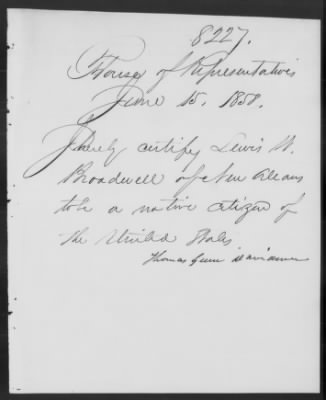 8227.
House of Representatives
June 15. 1858.
I hereby certify Lewis W.
Broadwell of New Orleans
to be a native citizen of
the United States
Thomas Green Davidson